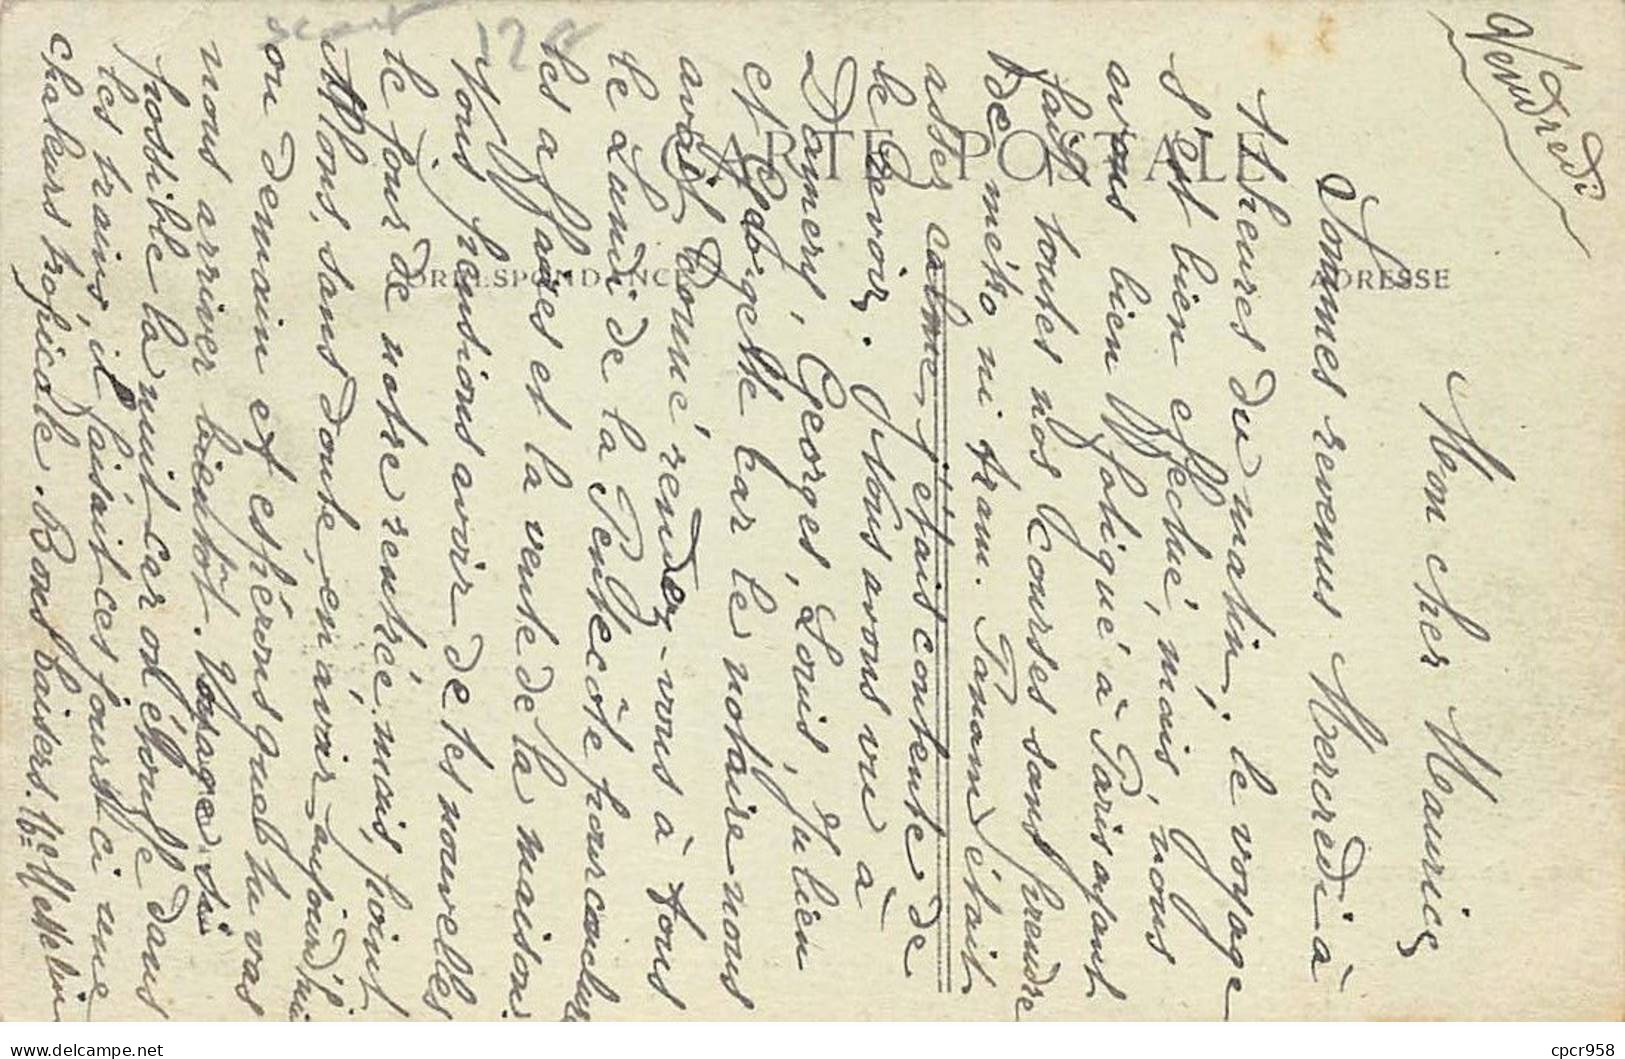 Vendredi
Mon cher Maurice
Sommes revenus Mercredi à
1 heures du matin, le voyage
s'est bien effectué, mais, nous
avons bien fatigué à Paris ayant
fait toutes nos courses sans prendre
de métro ni tram. Panam était
assez calme, j'étais contente de
le revoir. Nous avons vu à
Damery, Georges, Louis, Julien
et Edogette car le notaire nous
avait donné rendez-vous à tous
le Lundi de la Pentecôte pour conclure
les affaires et la vente de la maison.
Nous pensions avoir de tes nouvelles
le jour de notre rentrée, mais, point
Allons, sans doute, en avoir aujourd'hui
ou demain et espérons que tu vas
nous arriver bientôt. Voyage si
possible la nuit car on étouffe dans
les trains, il faisait ces jours-ci une
chaleur tropicale. Bons baisers.
CARTE POSTALE
CORRESPONDANCE
ADRESSE
delcampe.net
cpcr958